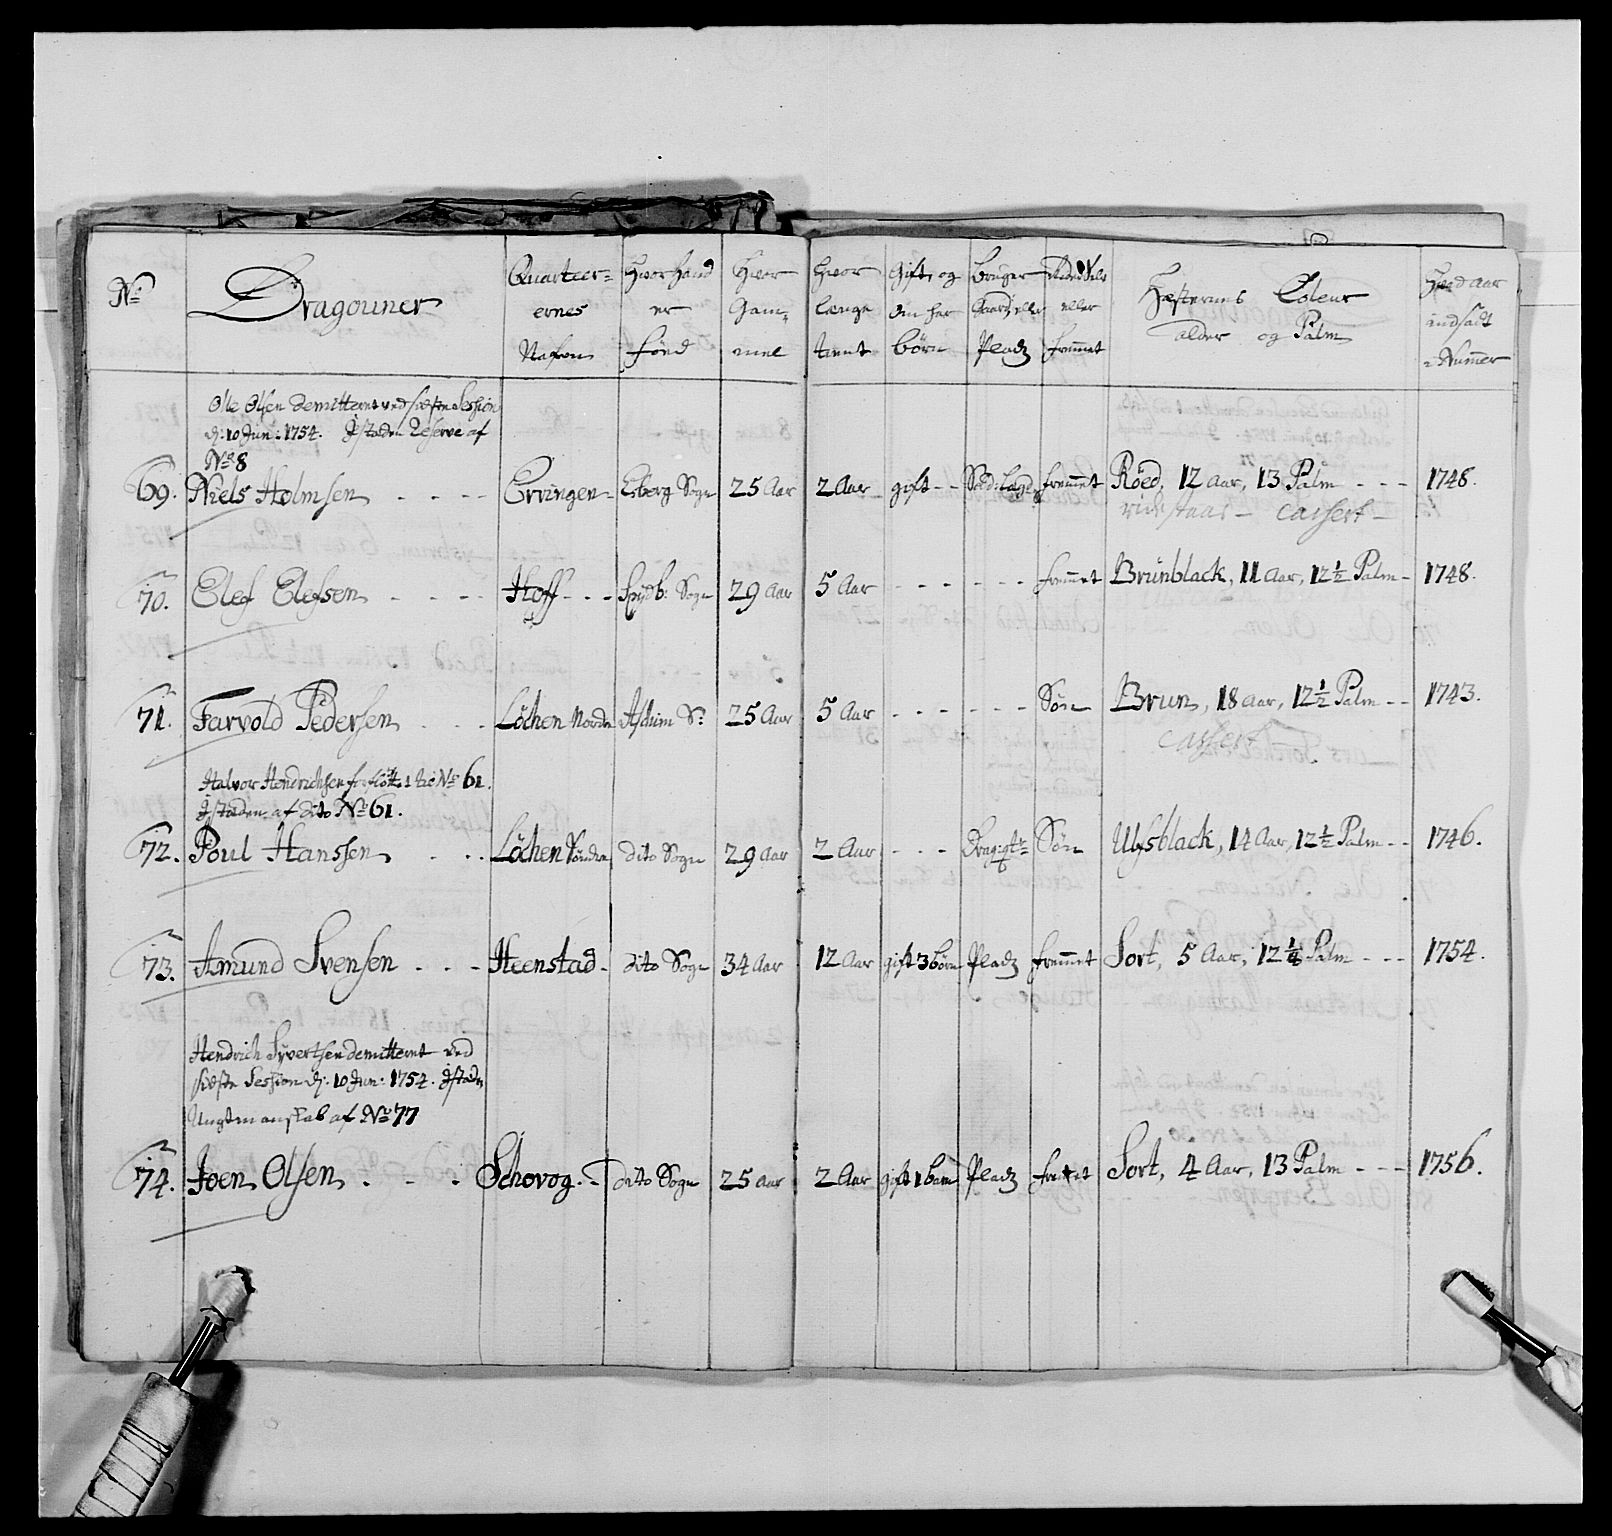 No Dragouner Quarteer= ernes Nafen Hvor hand er fönd Hvor Gam= mel Hvor længe tient Gift, og om har börn Bruger Gaard eller Pladz eller fremmet Hæsternes Coleur alder og Palm Hvad aar indsadt Nummer
Ole Olsen demitteret ved sidste Session
d: 10 Jun: 1754. Istæden Reserve af
No 8
69. Niels Holmsen - - - - Ervingen - Eiberg Sogn 25 Aar 2 Aar gift - - fremmet Röed, 12 Aar, 13 Palm - - - 1748.
cassert -
70. Elef Elefsen - - - - Hoff - - - Spydb: Sogn 29 Aar 5 Aar - - - - - - fremmet Brünblack, 11 Aar, 12½ Palm - 1748.
71. Farvold Pedersen - - - Löchen Nordre Aschim S: 25 Aar 5 Aar - - - - - - Sön Brun, 18 Aar, 12½ Palm - - 1743.
cassert
Halvor Hendrichsen forflött til No 61.
Istæden af dito No 61.
72. Poul Hanssen - - - Löchen Söndre dito Sogn 29 Aar 2 Aar - - - Sön Ulfsblack, 14 Aar, 12½ Palm - - 1746.
73. Amund Svensen - - - Heenstad - dito Sogn 34 Aar 12 Aar gift 3 börn Pladz fremmet Sort, 5 Aar, 12¼ Palm - - - 1754.
Hendrich Syvertsen demitteret ved
sidste Session d: 10 Jun: 1754. Istæden
Ungt mandskab af No 77
74. Joen Olsen - - - Schovog - dito Sogn 25 Aar 2 Aar gift 1 barn Pladz fremmet Sort, 4 Aar, 13 Palm - - - 1756.